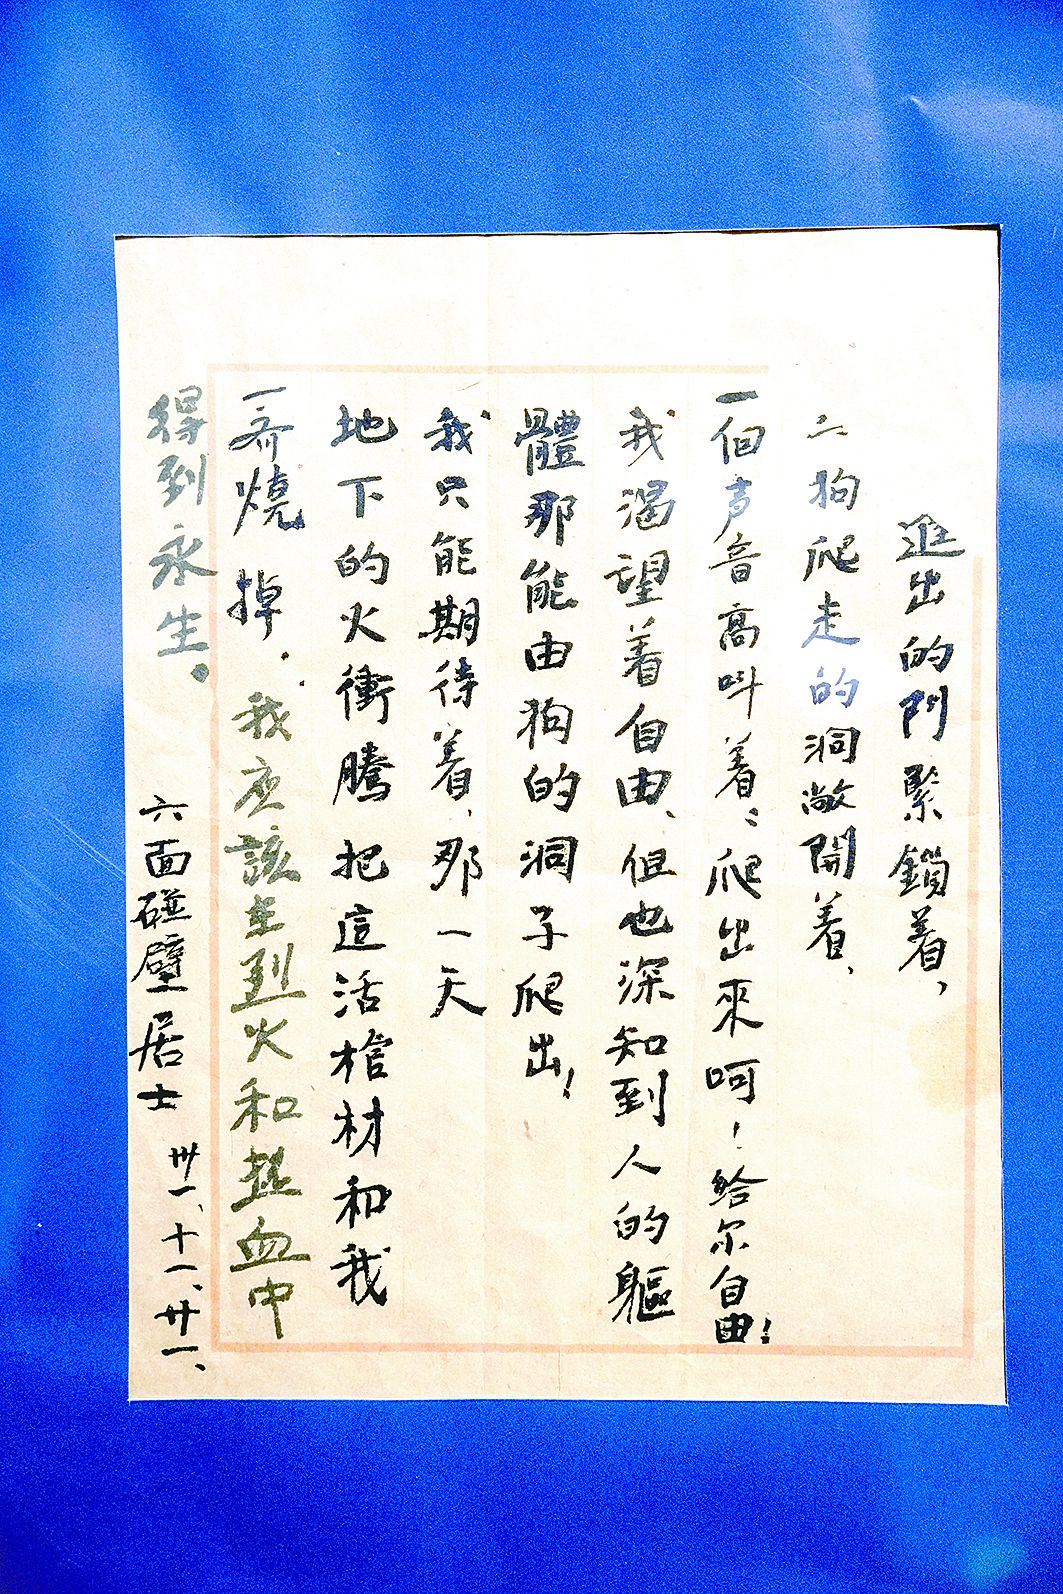 進出的門緊鎖着,
狗爬走的洞敞開着、
一個声音高叫着:爬出來呵!給尔自由!
我渴望着自由、但也深知到人的軀
體那能由狗的洞子爬出!
我只能期待着、那一天
地下的火衝騰把這活棺材和我
一斎燒掉.我应該在烈火和热血中
得到永生。
六面碰壁居士
卅一、十一、廿一、